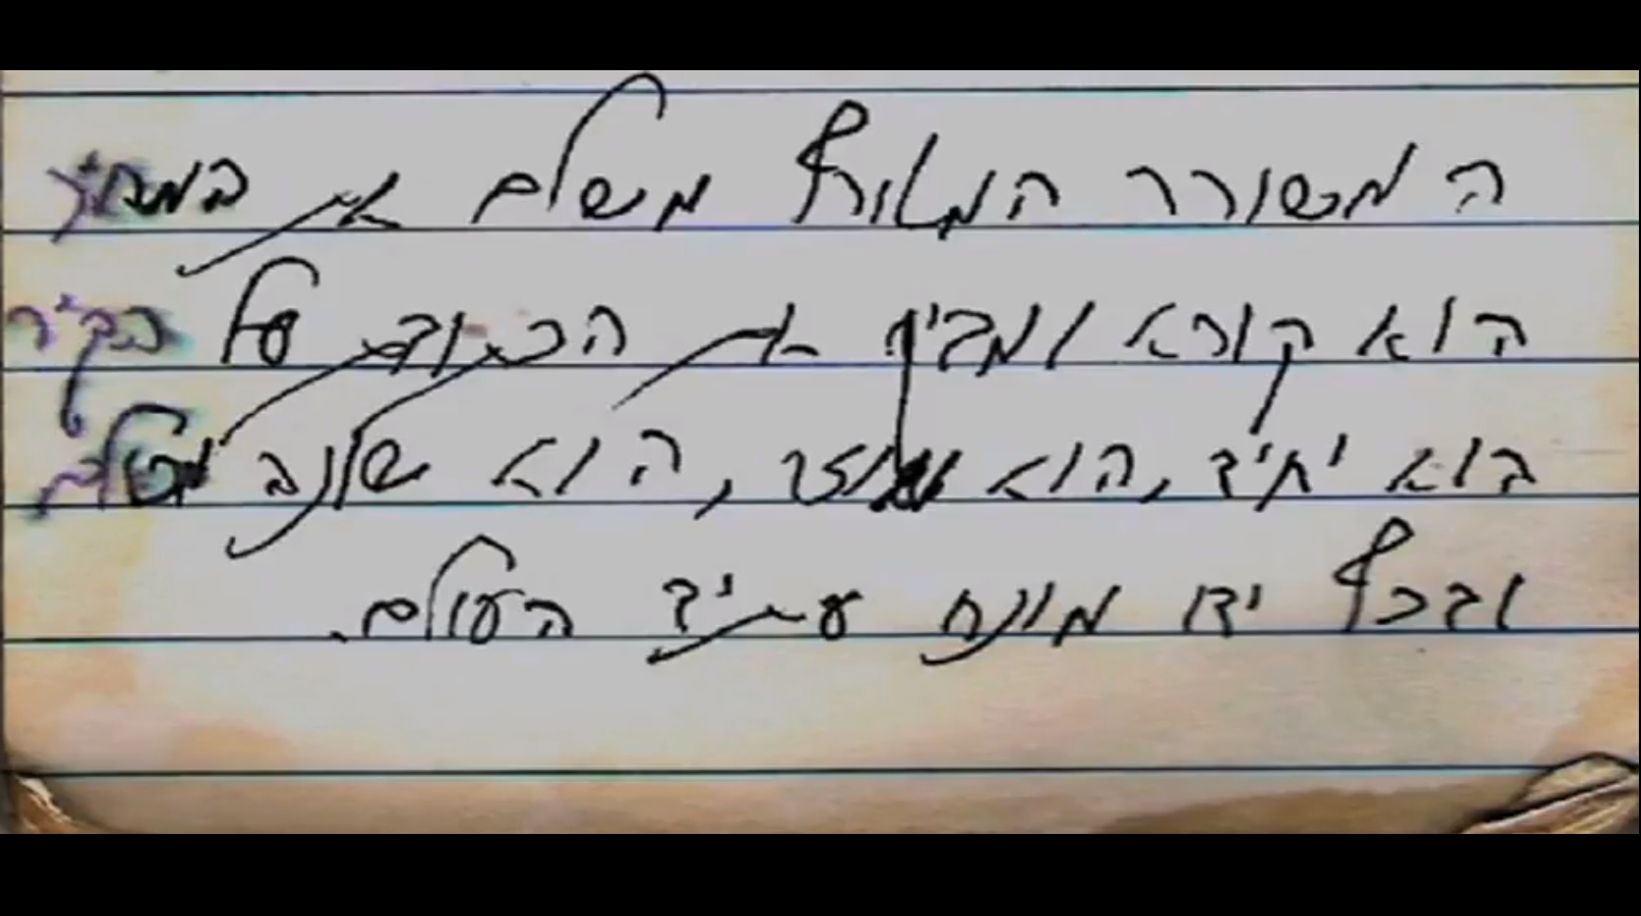 המשורר המטורף משלם את המחיר
הוא קורא ומבין את הכתובת של הקיר
הוא יחיד, הוא מוזר, הוא שונה ומושלם
ובכף ידו מונח עתיד העולם.